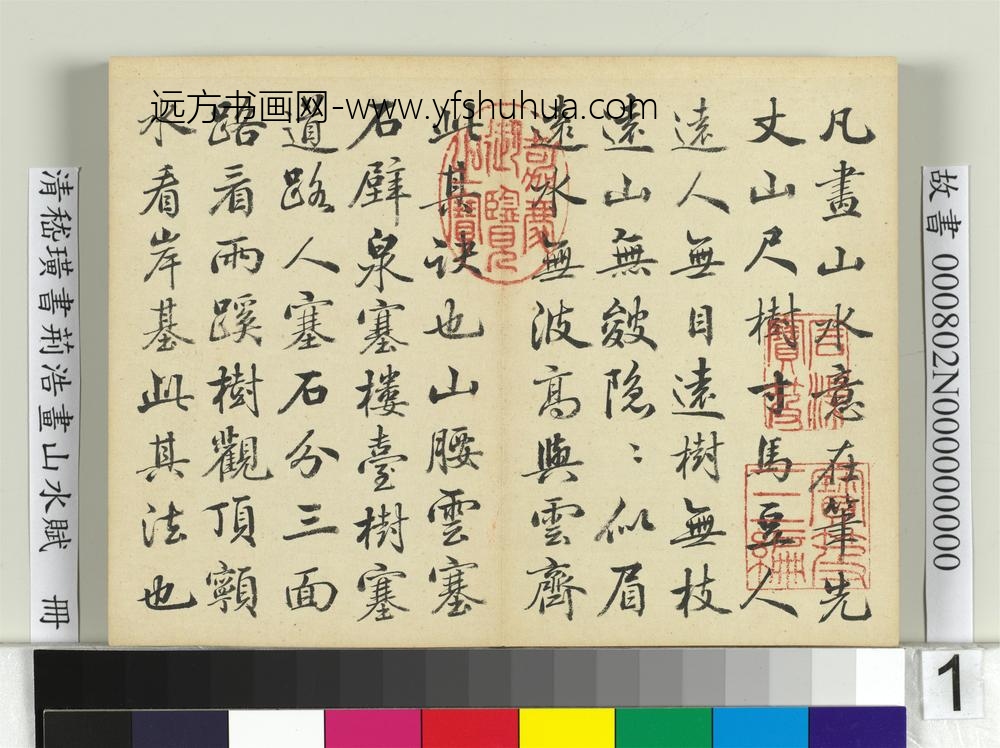 远方书画网-www.yfshuhua.com
凡畫山水意在筆先
丈山尺樹寸馬豆人
遠人無目遠樹無枝
遠山無皴隐〻似眉
遠水無波高與雲齊
此其訣也山腰雲塞
石壁泉塞樓臺樹塞
道路人塞石分三面
路看兩蹊樹觀頂顊
水看岸基此其法也
嘉慶御覽之寶
石渠寶笈
故書 000802N000000000
清嵇璜書荊浩畫山水賦 冊
1